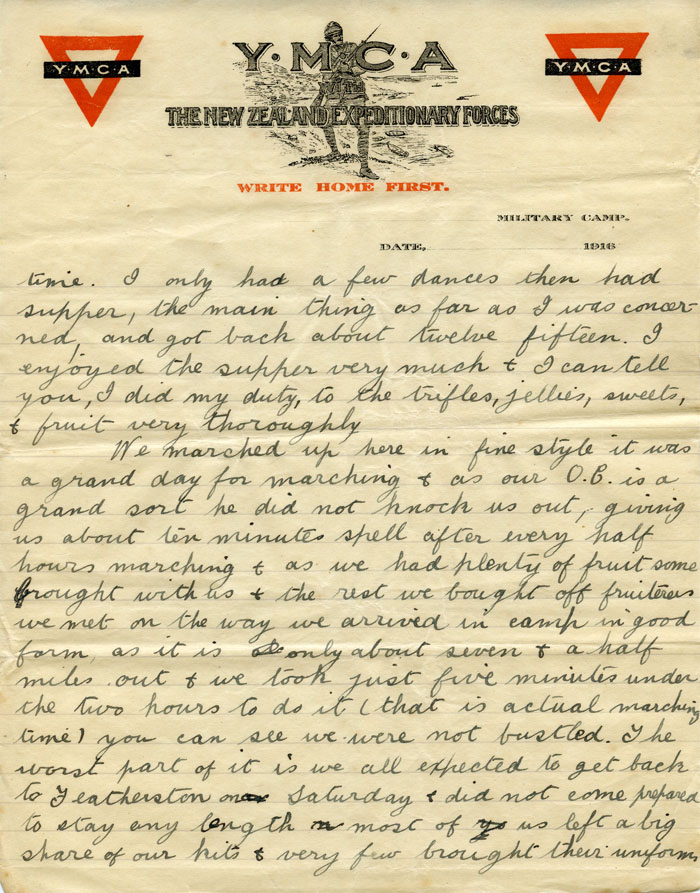 Y·M·C·A
Y·M·C·A
Y·M·C·A
WITH
THE NEW ZEALAND EXPEDITIONARY FORCES
WRITE HOME FIRST.
MILITARY CAMP.
DATE, 1916
time. I only had a few dances then had
supper, the main thing as far as I was concer-
ned, and got back about twelve fifteen. I
enjoyed the supper very much & I can tell
you, I did my duty, to the trifles, jellies, sweets,
& fruit very thoroughly
We marched up here in fine style it was
a grand day for marching & as our O.C. is a
grand sort he did not knock us out, giving
us about ten minutes spell after every half
hours marching & as we had plenty of fruit some
brought with us & the rest we bought off fruiterers
we met on the way we arrived in camp in good
form, as it is only about seven & a half
miles out & we took just five minutes under
the two hours to do it (that is actual marching
time) you can see we were not bustled. The
worst part of it is we all expected to get back
to Featherston on Saturday & did not come prepared
to stay any length most of us left a big
share of our kits & very few brought their uniforms